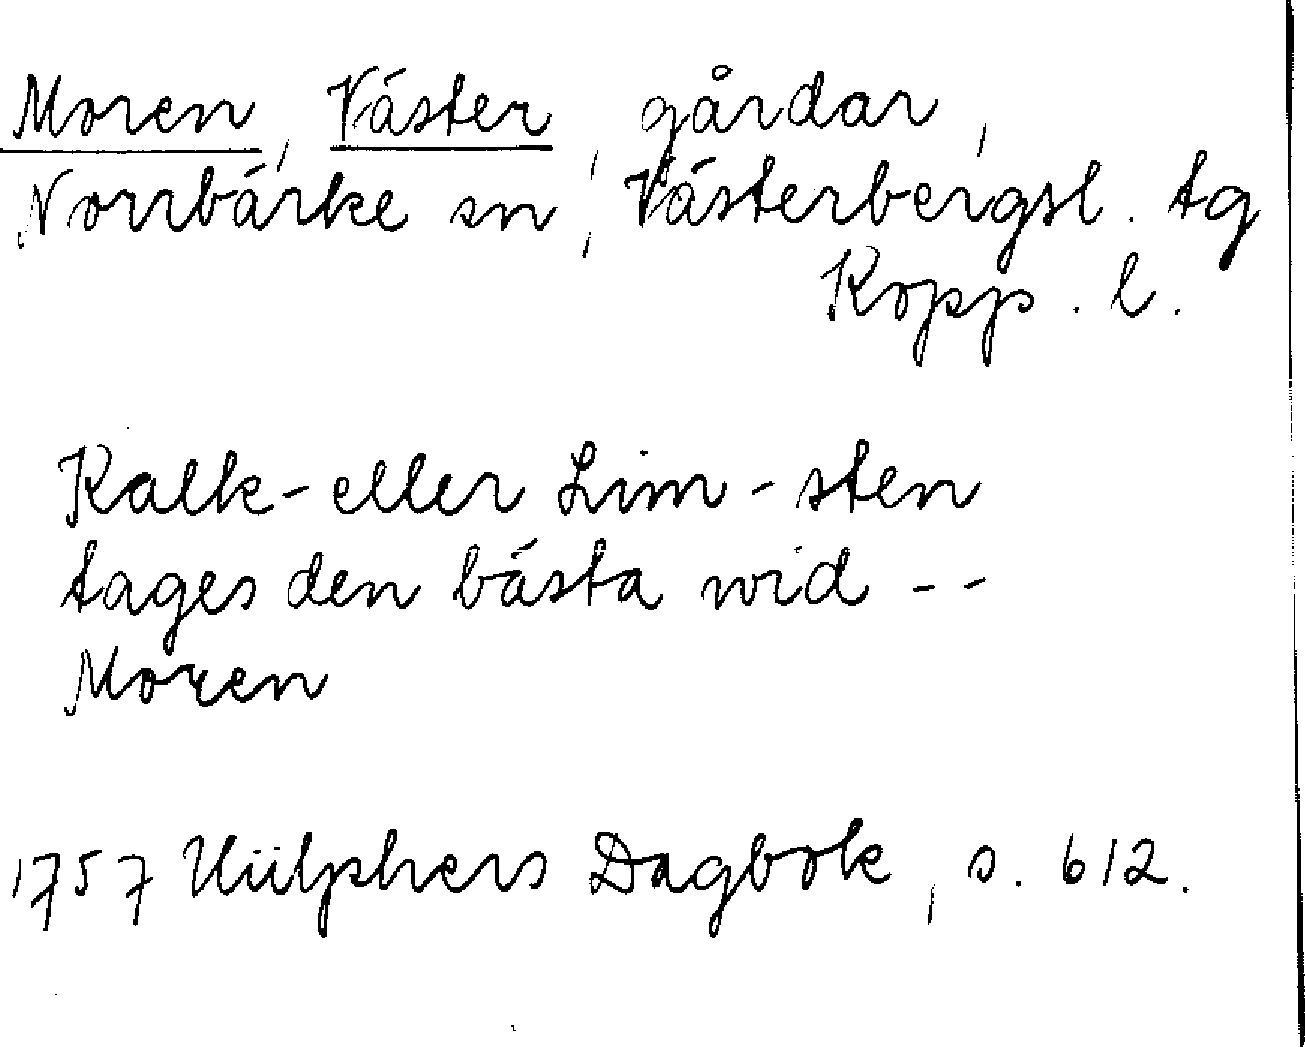 Moren, Väster, gårdar,
Norrbärke sn, Västerbergsl. tg
Kopp. l.
Kalk- eller Lim-sten
tages den bästa wid --
Moren
1757 Hülphers Dagbok, s. 612.